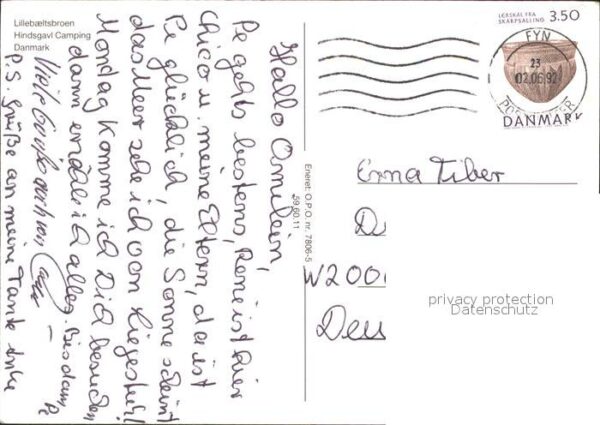 Lillebæltsbroen
Hindsgavl Camping
Danmark
Hallo Omilein,
Pe gehts bestens, Rene ist hier
Chico u. meine Eltern, da ist
Pe glücklich, die Sonne scheint
das Meer sehe ich von Liegestuhl
Montag komme ich Dich besuchen
dann erzähle ich alles. Bis dann, Pe
Viele Grüße auch von
P.S. Grüße an meine Tante Anke
Eneret: O.P.O. nr. 7806-5
59.60.11
LERSKÅL FRA
SKARPSALLING
3.50
FYN
23
02.06.92
DANMARK
Erna Tiber
D
W200
Deu
privacy protection
Datenschutz